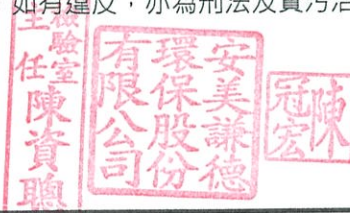 如有違反，亦為刑法及貪污治
檢驗室
主任陳資聰
安美謙德
環保股份
有限公司
陳冠宏